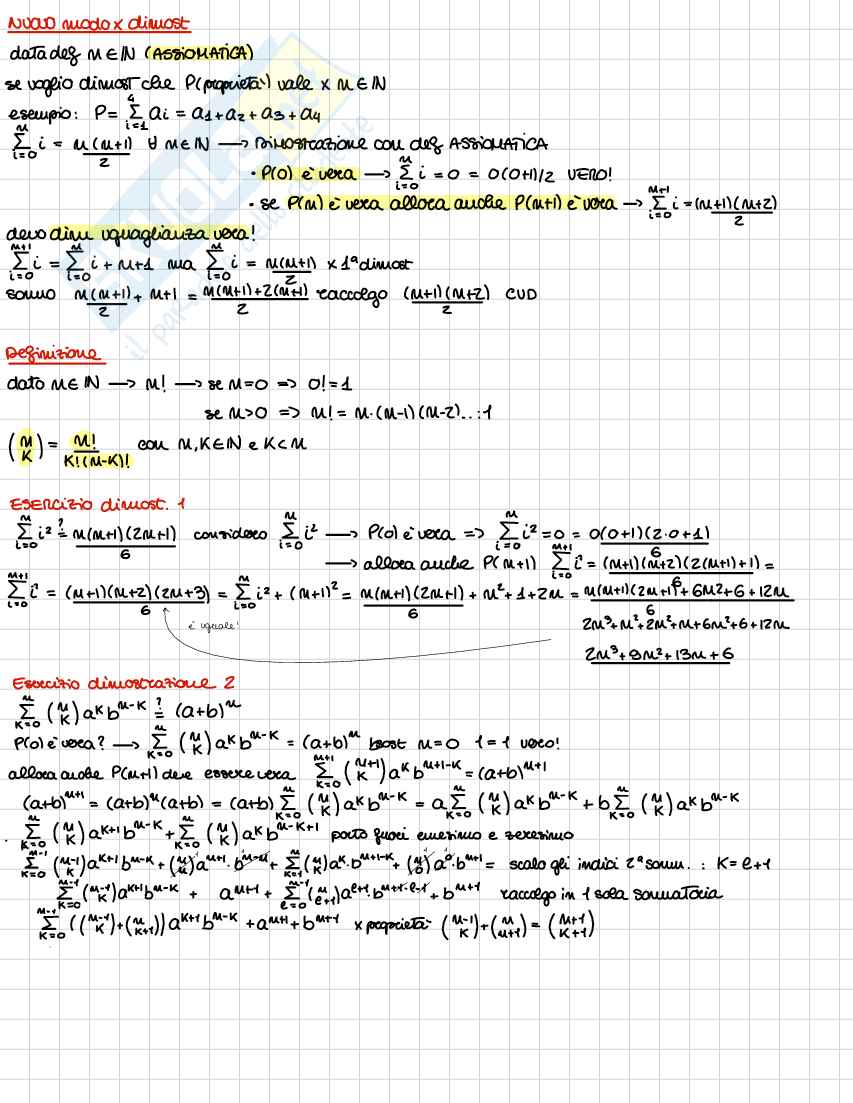 NUOVO modo x dimost
data def n ∈ ℕ (ASSIOMATICA)
se voglio dimost che P(proprietà) vale x n ∈ ℕ
esempio: P = ∑_{i=1}^{4} ai = a1 + a2 + a3 + a4
∑_{i=0}^{n} i = n(n+1)/2 ∀ n ∈ ℕ → DIMOSTRAZIONE con def ASSIOMATICA
• P(0) è vera → ∑_{i=0}^{n} i = 0 = 0(0+1)/2 VERO!
• se P(n) è vera allora anche P(n+1) è vera → ∑_{i=0}^{n+1} i = (n+1)(n+2)/2
devo dim uguaglianza vera!
∑_{i=0}^{n+1} i = ∑_{i=0}^{n} i + n+1 ma ∑_{i=0}^{n} i = n(n+1)/2 x 1ª dimost
sommo n(n+1)/2 + n+1 = n(n+1)+2(n+1)/2 raccolgo (n+1)(n+2)/2 CVD
Definizione
dato n ∈ ℕ → n! → se n=0 => 0! = 1
se n>0 => n! = n·(n-1)(n-2)...·1
(n K) = n!/K!(n-K)! con n, K ∈ ℕ e K<n
ESERCIZIO dimost. 1
∑_{i=0}^{n} i² ≟ n(n+1)(2n+1)/6 considero ∑_{i=0}^{n} i² → P(0) è vera => ∑_{i=0}^{n} i² = 0 = 0(0+1)(2·0+1)/6
→ allora anche P(n+1) ∑_{i=0}^{n+1} i² = (n+1)(n+2)(2(n+1)+1)/6 =
∑_{i=0}^{n+1} i² = (n+1)(n+2)(2n+3)/6 = ∑_{i=0}^{n} i² + (n+1)² = n(n+1)(2n+1)/6 + n²+1+2n = n(n+1)(2n+1)+6n²+6+12n/6
è uguale!
2n³+n²+2n²+n+6n²+6+12n
2n³+9n²+13n+6
Esercizio dimostrazione 2
∑_{K=0}^{n} (n K) a^K b^{n-K} ≟ (a+b)^n
P(0) è vera? → ∑_{K=0}^{n} (n K) a^K b^{n-K} = (a+b)^n n=0 1=1 vero!
allora anche P(n+1) deve essere vera ∑_{K=0}^{n+1} (n+1 K) a^K b^{n+1-K} = (a+b)^{n+1}
(a+b)^{n+1} = (a+b)^n (a+b) = (a+b) ∑_{K=0}^{n} (n K) a^K b^{n-K} = a ∑_{K=0}^{n} (n K) a^K b^{n-K} + b ∑_{K=0}^{n} (n K) a^K b^{n-K}
∑_{K=0}^{n} (n K) a^{K+1} b^{n-K} + ∑_{K=0}^{n} (n K) a^K b^{n-K+1} porto fuori ennesimo e zeresimo
∑_{K=0}^{n-1} (n-1 K) a^{K+1} b^{n-K} + (n n) a^{n+1} · b^{n-n} + ∑_{K=1}^{n} (n K) a^K · b^{n+1-K} + (n 0) a^0 · b^{n+1} = scalo gli indici 2ª somm. : K = l+1
∑_{K=0}^{n-1} (n-1 K) a^{K+1} b^{n-K} + a^{n+1} + ∑_{l=0}^{n-1} (n l+1) a^{l+1} · b^{n+1-l-1} + b^{n+1} raccolgo in 1 sola sommatoria
∑_{K=0}^{n-1} ((n-1 K) + (n K+1)) a^{K+1} b^{n-K} + a^{n+1} + b^{n+1} x proprietà (n-1 K) + (n n+1) = (n+1 K+1)